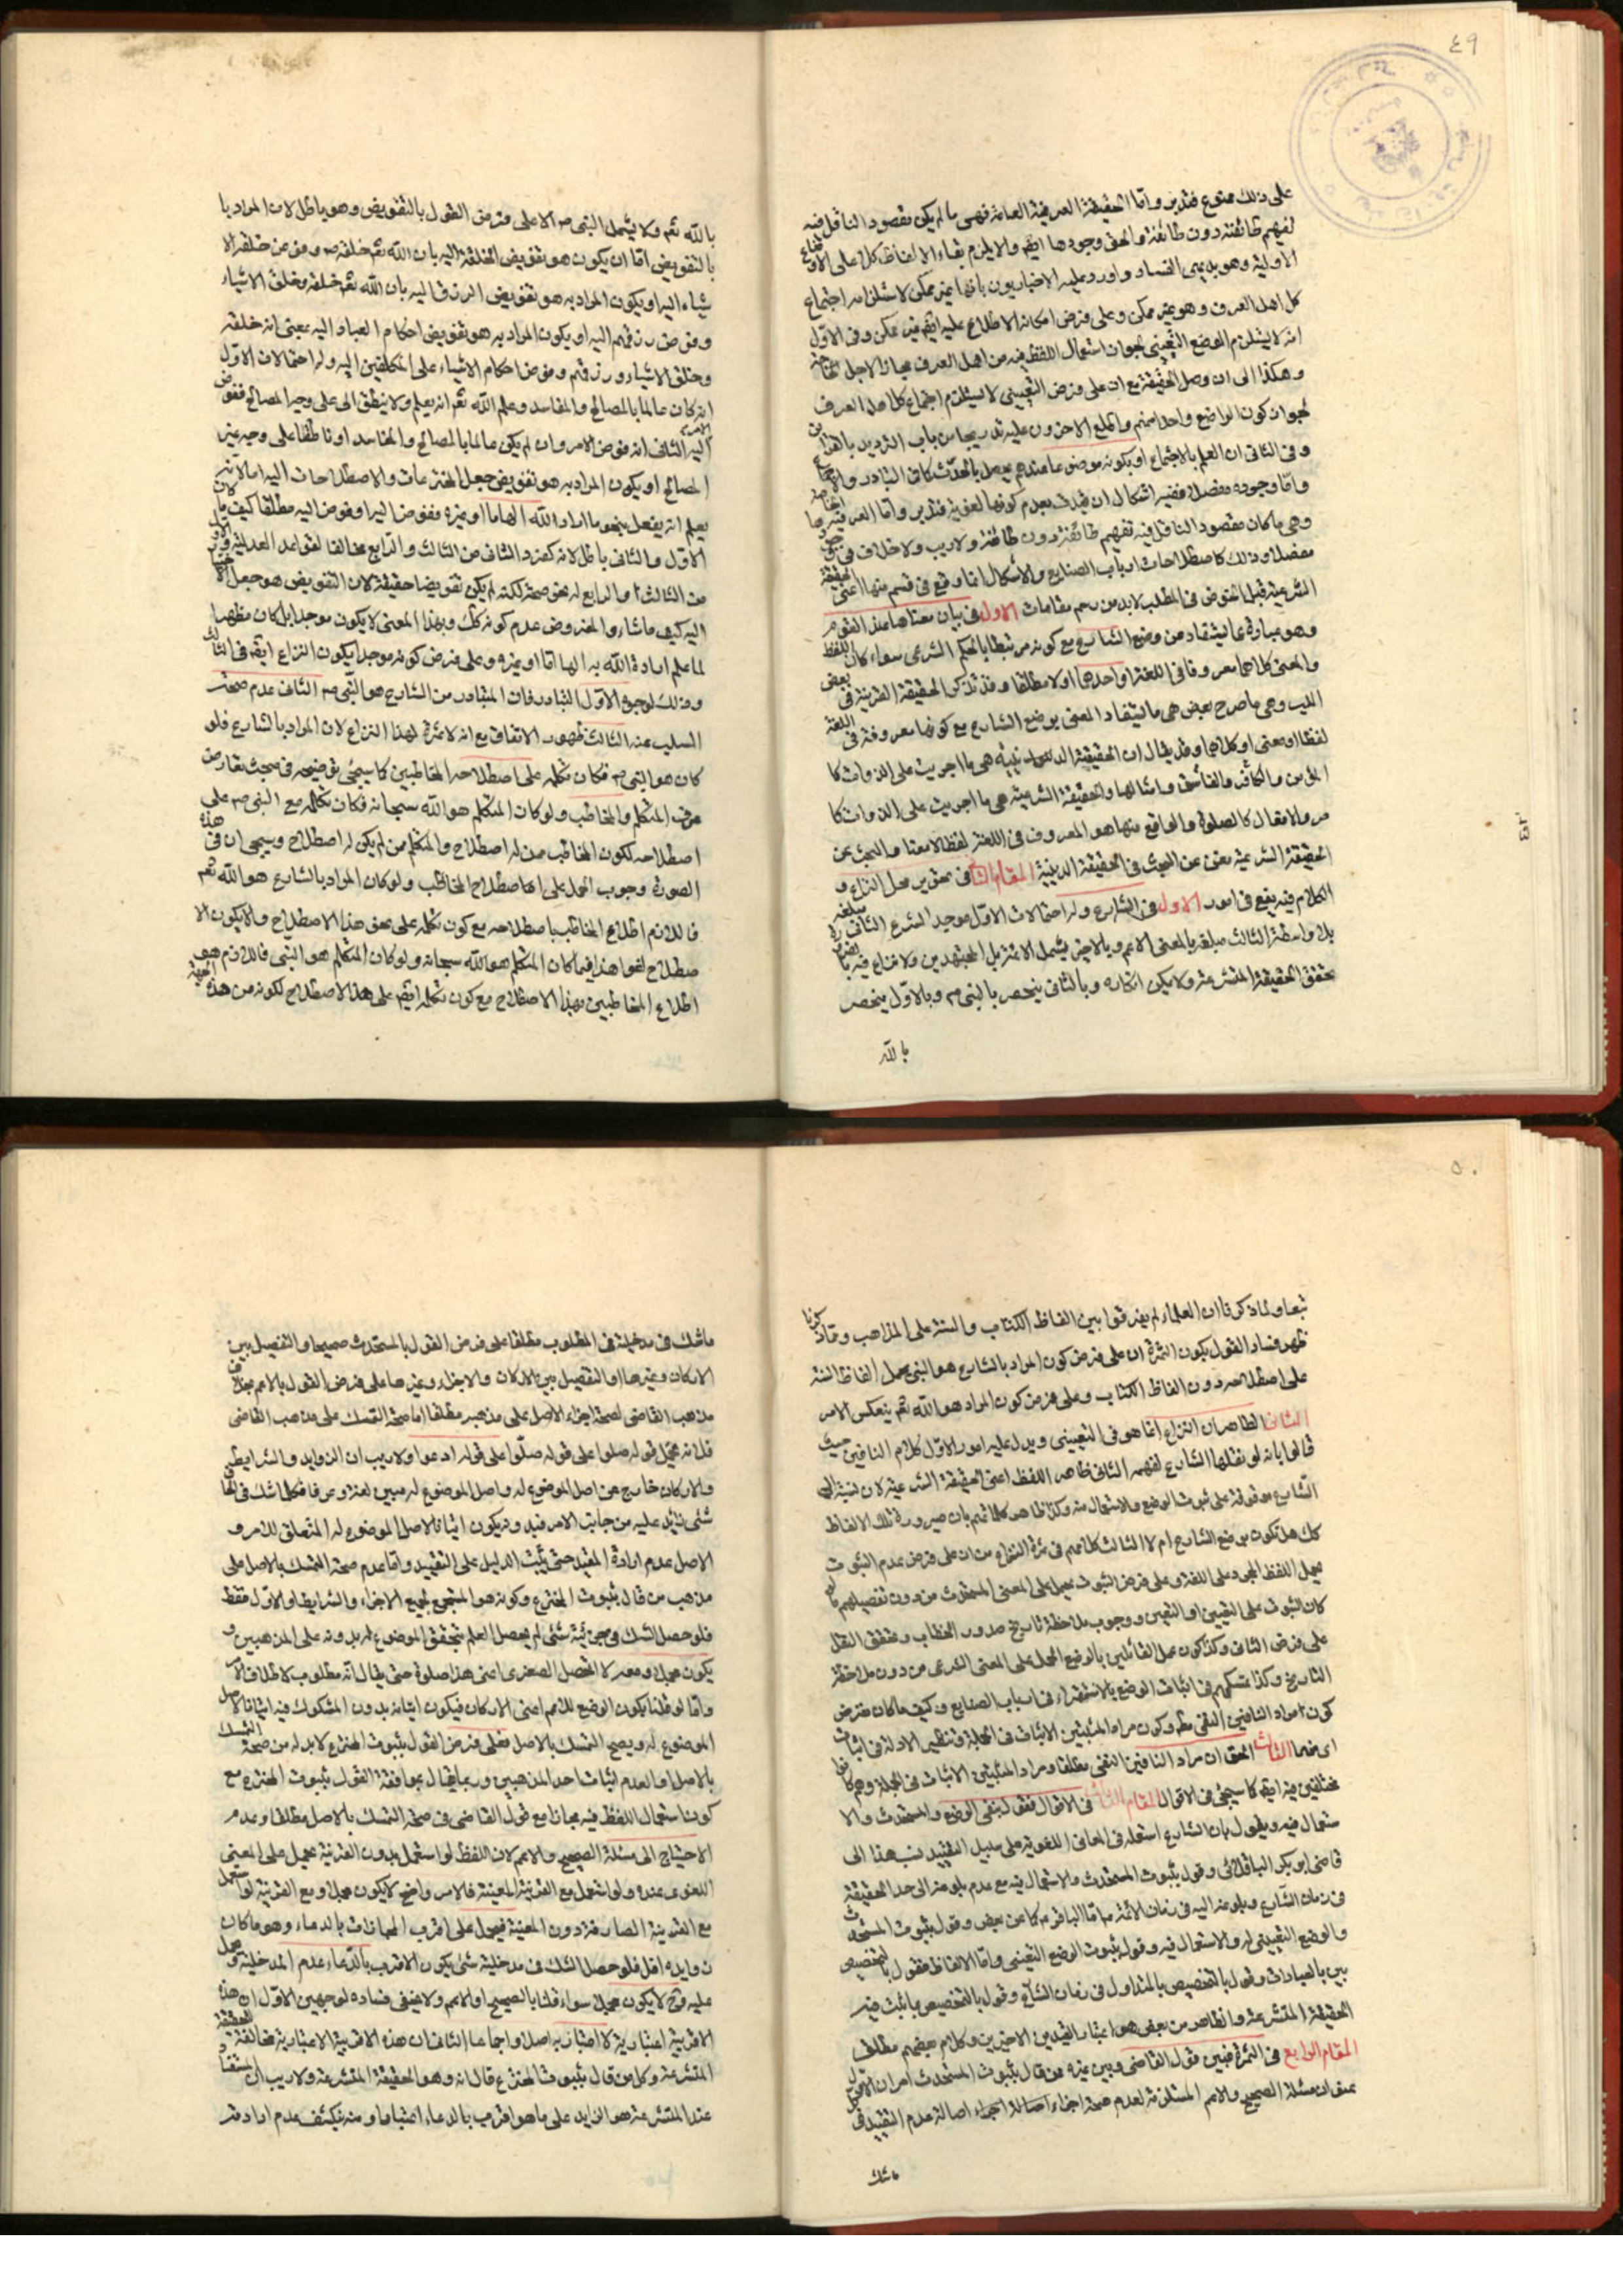 ٤٩
على ذلك ممنوع فتدبر واما الحقيقة العرفية العامة فهى ما لم يكن مقصود الناقل فيه
تفهيم طائفة دون طائفة والحق وجودها ايضا والا يلزم بقاء الالفاظ كل على الاوضاع
الاولية وهو بديهى الفساد واورد عليه الاخباريون بانها غير ممكن لاستلزامه اجتماع
كل اهل العرف وهو غير ممكن وعلى فرض امكانه الاطلاع عليه ايضا غير ممكن وفى الاول
انه لا يستلزم الوضع التعيينى لجواز استعمال اللفظ فيه من اهل العرف مجازا لاجل
وهكذا الى ان وصل الحقيقة مع ان على فرض التعيينى لا يستلزم اجتماع كل اهل العرف
لجواز كون الواضع واحدا منهم واطلع الاخرون عليه تدريجا من باب الترديد بالقرائن
وفى الثانى ان العلم بالاجتماع او بكونه موضوعا عندهم يحصل بالحدس كما فى التبادر والاجماع
واما وجوده مفصلا ففيه اشكال ان قيدت بعدم كونها لغوية فتدبر واما العرفية الخاصة
وهى ما كان مقصود الناقل فيه تفهيم طائفة دون طائفة ولا ريب ولا خلاف فى
مفصلا وذلك كاصطلاحات ارباب الصنايع والاشكال انما وقع فى قسم منها اعنى الحقيقة
الشرعية قبل الخوض فى المطلب لابد من رسم مقامات الاول فى بيان معناها عند القوم
وهو عبارة عما يستفاد من وضع الشارع مع كونه مرتبطا بالحكم الشرعى سواء كان اللفظ
والمعنى كلاهما معروفا فى اللغة او احدهما او لا مطلقا وقد تذكر الحقيقة الدينية فى بعض
الكتب وهى ما صرح بعض هى ما يستفاد المعنى بوضع الشارع مع كونها معروفة فى اللغة
لفظا او معنى او كلاهما وقد يقال ان الحقيقة الدينية هى ما اجريت على الذوات كا
لمؤمن والكافر والفاسق وامثالها والحقيقة الشرعية هى ما اجريت على الذوات كا
لافعال كالصلوة والواقع منها هو المعروف فى اللغة لفظا لا معنا والبحث عن
الحقيقة الشرعية مغن عن البحث فى الحقيقة الدينية المقام الثانى فى تحرير محل النزاع و
الكلام فيه يقع فى امور الاول فى الشارع وله احتمالات الاول موجد الشرع الثانى مبلغه
بلا واسطة الثالث مبلغه بالمعنى الاعم وبالاخير يشمل الائمة بل المجتهدين ولا نزاع فيه
تحقق الحقيقة المتشرعة ولا يمكن انكاره وبالثانى ينحصر بالنبى ص وبالاول ينحصر
بالله
بالله تعم ولا يشمل النبى ص الا على فرض القول بالتفويض وهو باطل لان المراد با
لتفويض اما ان يكون هو تفويض الخلقة اليه بان الله تعم خلقه ص وفوض خلقة الا
شياء اليه او يكون المراد به هو تفويض الرزق اليه بان الله تعم خلقه وخلق الاشياء
وفوض رزقهم اليه او يكون المراد به هو تفويض احكام العباد اليه بمعنى انه خلقه
وخلق الاشياء ورزقهم وفوض احكام الاشياء على المكلفين اليه وله احتمالات الاول
انه كان عالما بالمصالح والمفاسد وعلم الله تعم انه يعلم ولا ينطق الى على وجه المصالح ففوض
اليه الامر الثانى انه فوض الامر وان لم يكن عالما بالمصالح والمفاسد او ناطقا على وجه غير
المصالح او يكون المراد به هو تفويض جعل المخترعات والاصطلاحات اليه اما لانه
يعلم انه يفعل بنحو ما اراد الله الهاما او غيره ففوض اليه او فوض اليه مطلقا كيف ما كان
الاول والثانى باطل لانه كفر والثانى من الثالث والرابع مخالفا لقواعد العدلية والاول
من الثالث والرابع له نحو صحة لكنه لم يكن تفويضا حقيقة لان التفويض هو جعل الامر
اليه كيف ما شاء والمفروض عدم كونه كك وبهذا المعنى لا يكون موجدا بل كان مظهرا
لما علم ارادة الله به الهاما او غيره وعلى فرض كونه موجدا يكون النزاع ايضا فى الثالث
وذلك لوجوه الاول التبادر فان المتبادر من الشارع هو النبى ص الثانى عدم صحة
السلب عنه الثالث ظهور الاتفاق مع انه لا ثمرة لهذا النزاع لان المراد بالشارع فلو
كان هو النبى ص فكان تكلمه على اصطلاحه المخاطبين كما سيجئ توضيحه فى مبحث تعارض
عرف المتكلم والمخاطب ولو كان المتكلم هو الله سبحانه فكان تكلمه مع النبى ص على
اصطلاحه لكون المخاطب ممن له اصطلاح والمتكلم ممن لم يكن له اصطلاح وسيجئ ان فى هذه
الصورة وجوب الحمل على اصطلاح المخاطب ولو كان المراد بالشارع هو الله تعم
فاللازم اطلاع المخاطب باصطلاحه مع كون تكلمه على نحو هذا الاصطلاح والا يكون الا
صطلاح لغوا هذا فيما كان المتكلم هو الله سبحانه ولو كان المتكلم هو النبى فاللازم هو
اطلاع المخاطبين بهذا الاصطلاح مع كون تكلمه ايضا على هذا الاصطلاح لكونه من هذه الجهة
٥٠
تبعا ولما ذكرنا ان العلماء لم يفرقوا بين الفاظ الكتاب والسنة على المذاهب ومما ذكرنا
ظهر فساد القول بكون الثمرة ان على فرض كون المراد بالشارع هو النبى يحمل الفاظ السنة
على اصطلاحه دون الفاظ الكتاب وعلى فرض كون المراد هو الله تعم ينعكس الامر
الثانى الظاهر ان النزاع انما هو فى التعيينى ويدل عليه امور الاول كلام النافين حيث
قالوا بانه لو نقلها الشارع لفهمه الثانى ظاهر اللفظ اعنى الحقيقة الشرعية لان نسبة الى
الشارع موقوفة على ثبوت الوضع والاستعمال منه وكذا ظاهر كلماتهم بان صيرورة تلك الالفاظ
كك هل تكون بوضع الشارع ام لا الثالث كلامهم فى ثمرة النزاع من ان على فرض عدم الثبوت
يحمل اللفظ المجرد على اللغة وعلى فرض الثبوت يحمل على المعنى المستحدث من دون تفصيلهم
كان الثبوت على التعيين او التعين ووجوب ملاحظة تاريخ صدور الخطاب وتحقق النقل
على فرض الثانى وكذا كون حمل القائلين بالوضع الحمل على المعنى الشرعى من دون ملاحظة
التاريخ وكذا تمسكهم فى اثبات الوضع بالاستقراء فى ارباب الصنايع وكيف ما كان فرض
كون مراد النافين النفى مطلقا وكون مراد المثبتين الاثبات فى الجملة فتظهر الادلة فى اثبات
ايهما الثالث الحق ان مراد النافين النفى مطلقا ومراد المثبتين الاثبات فى الجملة وهم كانوا
مختلفين فيه ايضا كما سيجئ فى الاقوال المقام الثالث فى الاقوال فقول بنفى الوضع والمستحدث والا
ستعمال فيه ويقول بان الشارع استعمله فى المعانى اللغوية على سبيل التقييد نسب هذا الى
قاضى ابو بكر الباقلانى وقول بثبوت المستحدث والاستعمال فيه مع عدم بلوغه الى حد الحقيقة
فى زمان الشارع وبلوغه اليه فى زمان الائمة ع اما الباقر ع كما عن بعض وقول بثبوت المستحدث
والوضع التعيينى له والاستعمال فيه وقول بثبوت الوضع التعينى واما الالفاظ فقول بالتخصيص
بين بالعبادات وقول بالتخصيص بالمتداول فى زمان الشارع وقول بالتخصيص بما ثبت فيه
الحقيقة المتشرعة والظاهر من بعض هو اعتبار القيدين الاخيرين وكلام بعضهم مطلق
المقام الرابع فى الثمرة فبين قول القاضى وبين غيره ممن قال بثبوت المستحدث امران الاول
عنوان مسئلة الصحيح والاعم المستلزمة لعدم صحة اجراء اصالة اصالة عدم التقييد فى
ماشك
ماشك فى مدخليته فى المطلوب مطلقا على فرض القول بالمستحدث صحيحا والتفصيل بين
الاركان وغيرها او التفصيل بين الاركان والاجزاء وغيرها على فرض القول بالاعم بخلاف
مذهب القاضى لصحة اجراء الاصل على مذهبه مطلقا اما صحة التمسك على مذهب القاضى
فلانه يحمل قوله صلوا على قوله صلوا على قوله ادعوا ولا ريب ان الزوايد والشرايط
والاركان خارج عن اصل الموضوع له واصل الموضوع له مبين لغة وعرفا فكلما شك فى
شئ زائد عليه من جانب الامر فيه ويكون اثباتا لاصل الموضوع له المتعلق للامر و
الاصل عدم ارادة المقيد حتى يثبت الدليل على التقييد واما عدم صحة التمسك بالاصل على
مذهب من قال بثبوت المخترع وكونه هو المستجمع لجميع الاجزاء والشرايط او الاول فقط
فلو حصل الشك فى جزئية شئ لم يحصل العلم بتحقق الموضوع له بدونه على المذهبين و
يكون مجملا ومعه لا يحصل الصغرى اعنى هذا صلوة حتى يقال انه مطلوب لاطلاق الامر
واما لو قلنا بكون الوضع للاعم اعنى الاركان فيكون اتيانه بدون المشكوك فيه اتيانا لاصل
الموضوع له ويصح التمسك بالاصل فعلى فرض القول بثبوت المخترع لابد له من صحة التمسك
بالاصل او العدم اثبات احد المذهبين وربما يقال بموافقة القول بثبوت المخترع مع
كونه استعمال اللفظ فيه مجازا مع قول القاضى فى صحة التمسك بالاصل مطلقا وعدم
الاحتياج الى مسئلة الصحيح والاعم لان اللفظ لو استعمل بدون القرينة يحمل على المعنى
اللغوى عنده ولو استعمل مع القرينة المعينة فالامر واضح لا يكون مجملا ومع القرينة لو استعمل
مع القرينة الصارفة دون المعينة فيحمل على اقرب المجازات بالدعاء وهو ما كان
زوايده اقل فلو حصل الشك فى مدخلية شئ يكون الاقرب بالدعاء عدم المدخلية ويحمل
عليه وح لا يكون مجملا سواء قلنا بالصحيح او الاعم ولا يخفى فساده لوجهين الاول ان هذه
الاقربية اعتبارية لا اعتبار به اصلا واجماعا الثانى ان هذه الاقربية الاعتبارية مخالفة للحقيقة
المتشرعة وكل من قال بثبوت المخترع قال انه هو الحقيقة المتشرعة ولا ريب ان
عند المتشرعة هو الزايد على ما هو اقرب بالدعاء اعتبارا ومنه يكشف عدم ارادته